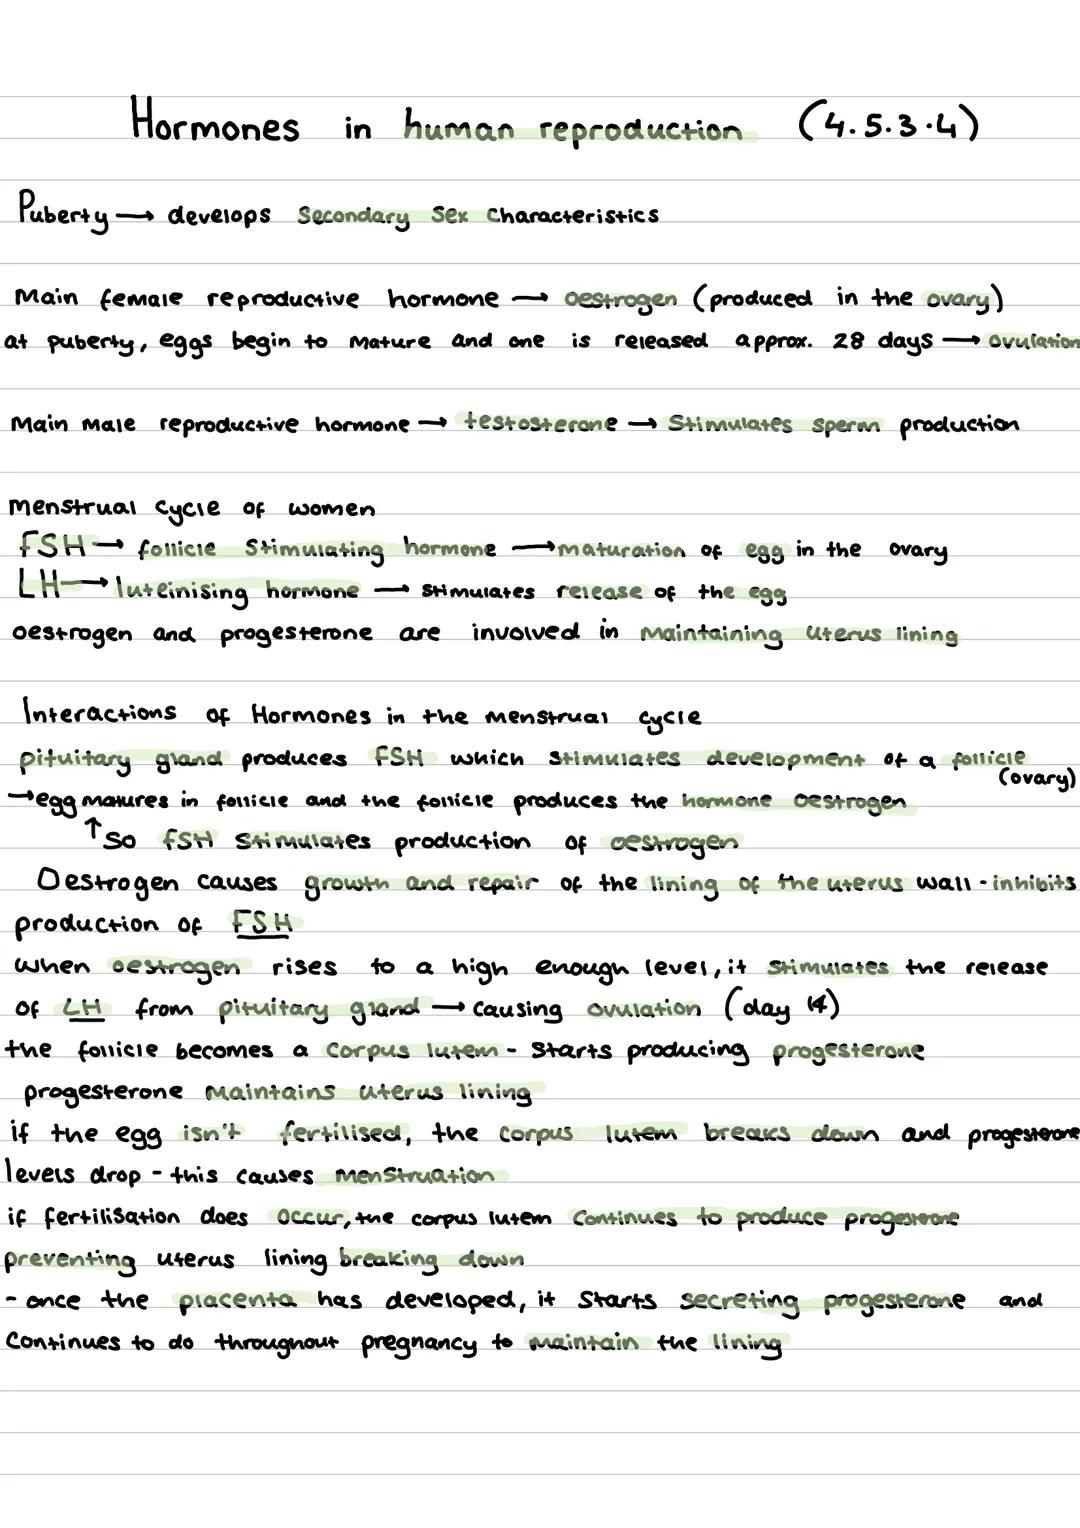 Hormones in human reproduction (4.5.3.4)
Puberty → develops Secondary Sex Characteristics
Main female reproductive hormone → oestrogen (produced in the ovary)
at puberty, eggs begin to mature and one is released approx. 28 days → ovulation
Main male reproductive hormone → testosterone → Stimulates sperm production
menstrual cycle of women
FSH → follicle Stimulating hormone → maturation of egg in the ovary
LH → luteinising hormone → stimulates release of the egg
oestrogen and progesterone are involved in maintaining uterus lining
Interactions of Hormones in the menstrual cycle
pituitary gland produces FSH which stimulates development of a follicle
(ovary)
→ egg matures in follicle and the follicle produces the hormone oestrogen
↑ So FSH stimulates production of oestrogen
Oestrogen causes growth and repair of the lining of the uterus wall - inhibits
production of FSH
when oestrogen rises to a high enough level, it stimulates the release
of LH from pituitary gland → causing ovulation (day 14)
the follicle becomes a corpus lutem - Starts producing progesterone
progesterone maintains uterus lining
if the egg isn't fertilised, the corpus lutem breaks down and progesterone
levels drop - this causes menstruation
if fertilisation does occur, the corpus lutem continues to produce progesterone
preventing uterus lining breaking down
- once the placenta has developed, it starts secreting progesterone and
Continues to do throughout pregnancy to maintain the lining